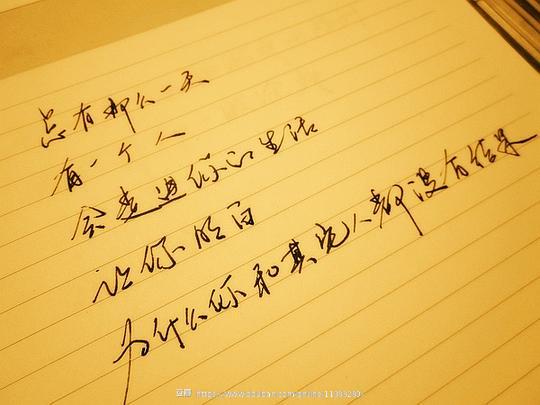 总有那么一天
有一个人
会走进你的生活
让你明白
为什么你和其他人都没有结果
豆瓣